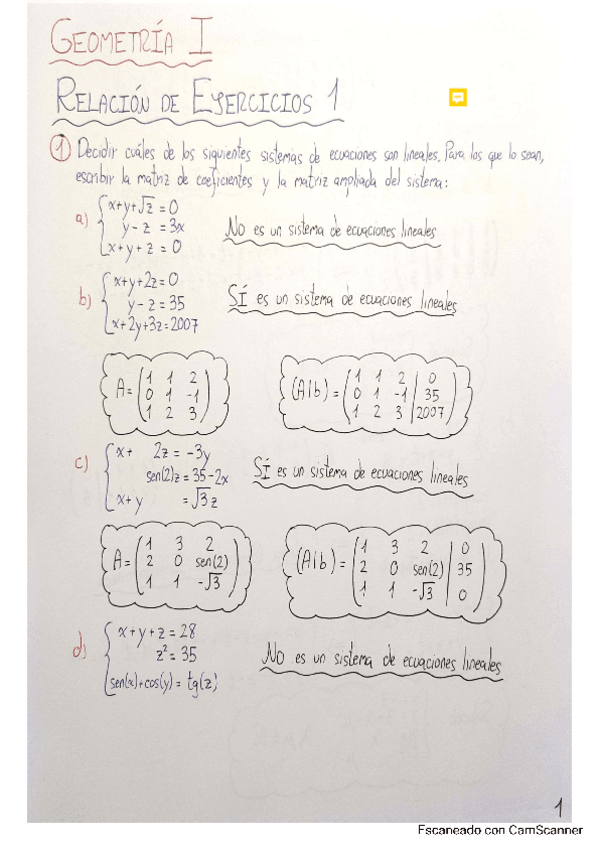 GEOMETRÍA I
RELACIÓN DE EJERCICIOS 1
1 Decidir cuáles de los siguientes sistemas de ecuaciones son lineales. Para los que lo sean,
escribir la matriz de coeficientes y la matriz ampliada del sistema:
a) { x+y+√z = 0
y-z = 3x
x+y+z = 0
No es un sistema de ecuaciones lineales
b) { x+y+2z=0
y-z=35
x+2y+3z=2007
SÍ es un sistema de ecuaciones lineales
A = ( 1 1 2
0 1 -1
1 2 3 )
(A|b) = ( 1 1 2 | 0
0 1 -1 | 35
1 2 3 | 2007 )
c) { x+ 2z = -3y
sen(2)z = 35-2x
x+y = √3 z
SÍ es un sistema de ecuaciones lineales
A = ( 1 3 2
2 0 sen(2)
1 1 -√3 )
(A|b) = ( 1 3 2 | 0
2 0 sen(2) | 35
1 1 -√3 | 0 )
d) { x+y+z = 28
z² = 35
sen(x)+cos(y) = tg(z)
No es un sistema de ecuaciones lineales
1
Escaneado con CamScanner